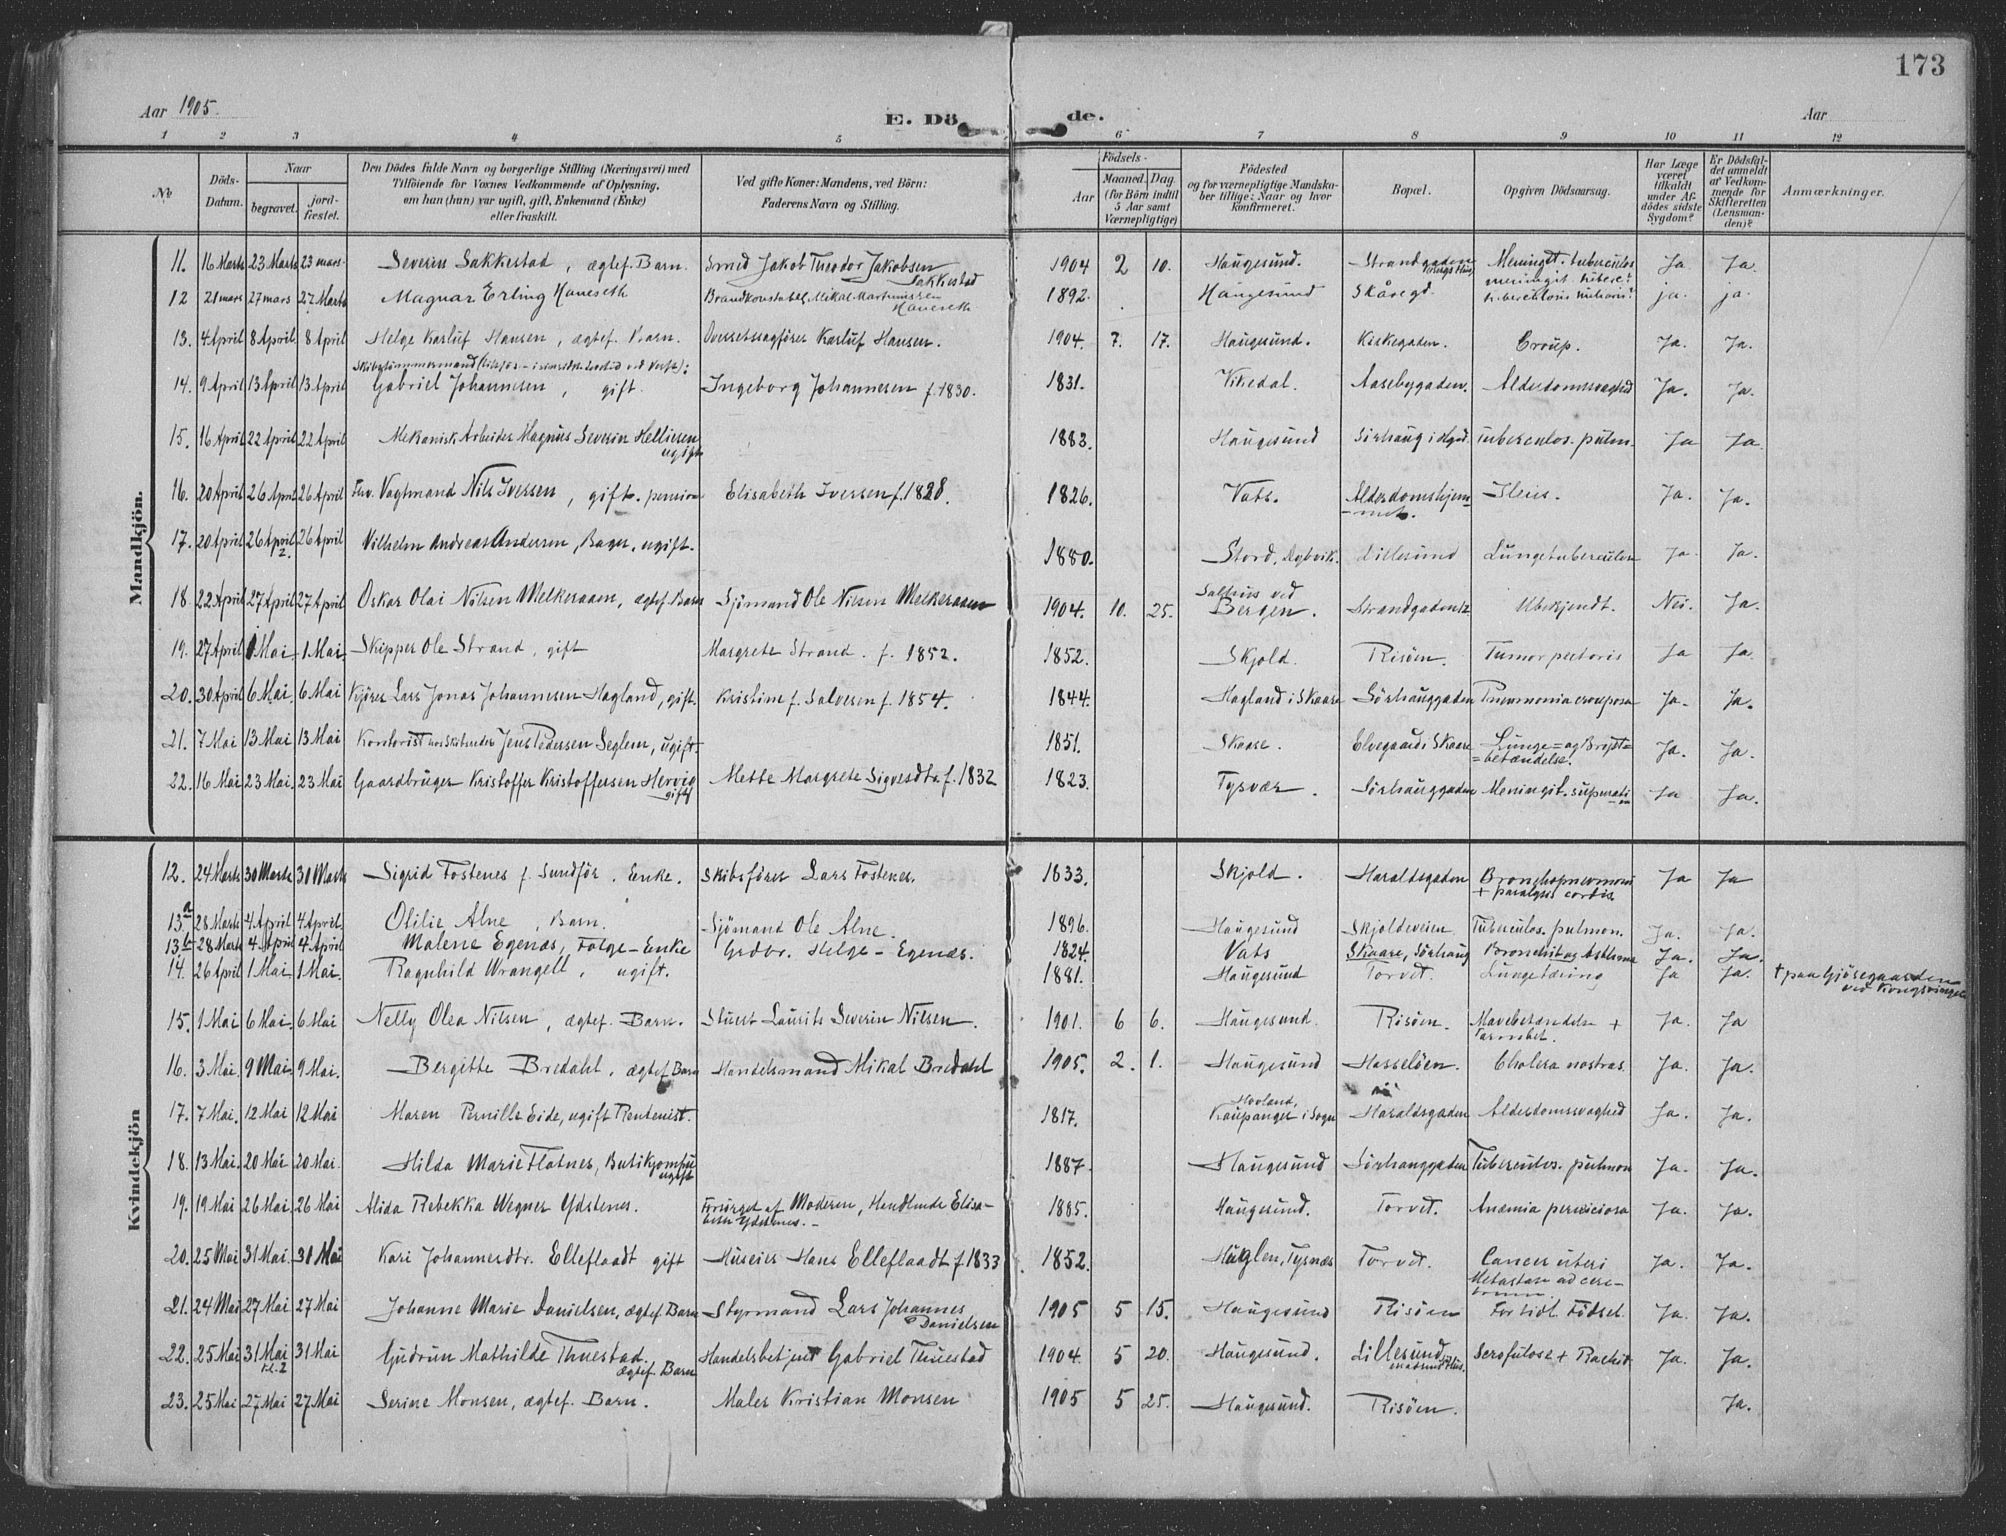 173
Aar 1905.
E. Döde.
Aar
1 2 3 4 5 6 7 8 9 10 11 12
No
Döds-Datum.
Naar
begravet.
jord-fæstet.
Den Dödes fulde Navn og borgerlige Stilling (Næringsvei) med
Tilföiende for Voxnes Vedkommende af Oplysning,
om han (hun) var ugift, gift, Enkemand (Enke)
eller fraskilt.
Ved gifte Koner: Mandens, ved Börn:
Faderens Navn og Stilling.
Födsels-
Aar
Maaned. Dag.
(for Börn indtil
5 Aar samt
Værnepligtige)
Födested
og for værnepligtige Mandska-
ber tillige: Naar og hvor
konfirmeret.
Bopæl.
Opgiven Dödsaarsag.
Har Læge
været
tilkaldt
under Af-
dödes sidste
Sygdom?
Er Dödsfal-
det anmeldt
af Vedkom-
mende for
Skifteretten
(Lensman-
den)?
Anmærkninger.
Mandkjön.
11. 16 Marts 23 Marts 23 mars. Severin Sakkestad, ægtef. Barn. Smed Jakob Theodor Jakobsen Sakkestad 1904 2 10. Haugesund. Strandgaden Meningit. tuberculos Ja Ja.
12 21 mars 27 mars 27 Marts Magnar Erling Haneseth Brandkonstabel Mikal Martinussen Haneseth 1892. Haugesund Skåregd. ja. ja.
13. 4 April 8 April. 8 April Helge Karluf Hansen, ægtef. Barn. Overretssagfører Karluf Hansen. 1904. 7. 17. Haugesund. Kirkegaden. Croup. Ja. Ja.
14. 9 April 13 April 13 April Skibstømmermand Gabriel Johannesen, gift. Ingeborg Johannesen f. 1830. 1831. Vikedal. Aasebygaden. Alderdomssvaghed Ja. Ja.
15. 16 April 22 April 22 April Mekanisk Arbeider Magnus Severin Hellisen ugift 1883. Haugesund Sørhaug Tuberculos. pulm. Ja Ja.
16. 20 April 26 April 26 April Fhv. Vagtmand Nils Iversen, gift. pension Elisabeth Iversen f. 1828. 1826. Vats. Alderdomshjem-met. Ileus. Ja. Ja.
17. 20 April 26 April 2. 26 April Vilhelm Andreas Andersen, Bager, ugift. 1880. Stord, Dybvik. Lillesund Lungetuberculose Ja. Ja.
18. 22 April 27 April 27 April Oskar Olai Nilsen Melkeraaen, ægtef. Barn Sjømand Ole Nilsen Melkeraaen 1904. 10. 25. Salhus ved Bergen. Strandgaden Ubekjendt. Nei. Ja.
19. 27 April 1 Mai 1 Mai. Skipper Ole Strand, gift Margrete Strand. f. 1852. 1852. Skjold. Risøen. Tumor pectoris Ja Ja.
20. 30 April 6 Mai. 6 Mai Kjører Lars Jonas Johannesen Hagland, gift. Kristine f. Salvesen f. 1854. 1844. Hagland i Skaare Sørhauggaden Pneumonia crouposa Ja. Ja.
21. 7 Mai 13 Mai 13 Mai Kontorist Jens Pedersen Seglem, ugift 1851. Skaare. Elvegaard i Skaare Lunge- og Bryst-betændelse. Ja. Ja.
22. 16 Mai 23 Mai. 23 Mai Gaardbruger Kristoffer Kristoffersen Hervig gift Mette Margrete Sigvesdtr. f. 1832 1823. Tysvær. Sørhauggaden Meningit. Ja Ja.
Kvindekjön
12. 24 Marts 30 Marts 30 Marts Sigrid Fostenes f. Sundfør. Enke. Skibsfører Lars Fostenes. 1833. Skjold. Haraldsgaden Bronchopneumoni + paralysis cordis Ja Ja
13a 28 Marts 4 April 4 April. Otilie Alne, Barn. Sjømand Ole Alne. 1896. Haugesund Skjoldeveien. Tuberculos. pulmon. Ja. Ja.
13b 28 Marts 4 April 4 April Malene Egenæs, Følge-Enke Grdbr. Helge - Egenæs. 1824. Vats Skaare, Sørhaug Bronchit og Asthma Ja. Ja.
14. 26 April 1 Mai. 1 Mai. Ragnhild Wrangell, ugift. 1881. Haugesund Torvet. Lungetæring Ja Ja. † paa Gjøsegaarden ved Kongsvinger
15. 1 Mai 6 Mai. 6 Mai Nelly Olea Nilsen, ægtef. Barn. Stuert Laurits Severin Nilsen. 1901. 6 6. Haugesund. Risøen. Mavebetændelse + Tarmbet. Ja. Ja
16. 3 Mai. 9 Mai. 9 Mai. Bergitte Bredahl, ægtef. Barn Handelsmand Mikal Bredahl 1905. 2. 1. Haugesund Hasseløen. Cholera nostras. Ja. Ja.
17. 7 Mai. 12 Mai 12 Mai Maren Pernille Eide, ugift Rentenist. 1817. Hovland, Kaupanger i Sogn Haraldsgaden Alderdomssvaghed Ja. Ja.
18. 13 Mai. 20 Mai 20 Mai. Hilda Marie Flotnes, Butikjomfru ugift 1887. Haugesund Sørhauggaden Tuberculos. pulmon Ja. Ja.
19. 19 Mai 26 Mai. 26 Mai Alida Rebekka Wegner Ydstenes. Forsørget af Moderen, Handlende Elisa-beth Ydstenes. 1885. Haugesund. Torvet. Anæmia perniciosa Ja. Ja.
20. 25 Mai 31 Mai. 31 Mai Kari Johannesdtr. Elleflaadt gift Huseier Hans Elleflaadt f 1833 1852. Huglen, Tysnæs Torvet. Cancer uteri Metastase ad cere-brum. Ja. Ja.
21. 24 Mai 27 Mai 27 Mai Johanne Marie Danielsen, ægtef. Barn Styrmand Lars Johannes Danielsen 1905 5 15. Haugesund Risøen For tidl. Fødsel. Ja. Ja.
22. 25 Mai 31 Mai kl. 2 31 Mai Gudrun Mathilde Thuestad. ægtef. Barn Handelsbetjent Gabriel Thuestad 1904. 5 20. Haugesund. Lillesund Scrofulose + Rachit. Ja. Ja.
23. 25 Mai 27 Mai 27 Mai Serine Monsen, ægtef. Barn. Maler Kristian Monsen 1905 5 25. Haugesund. Risøen. Ja.